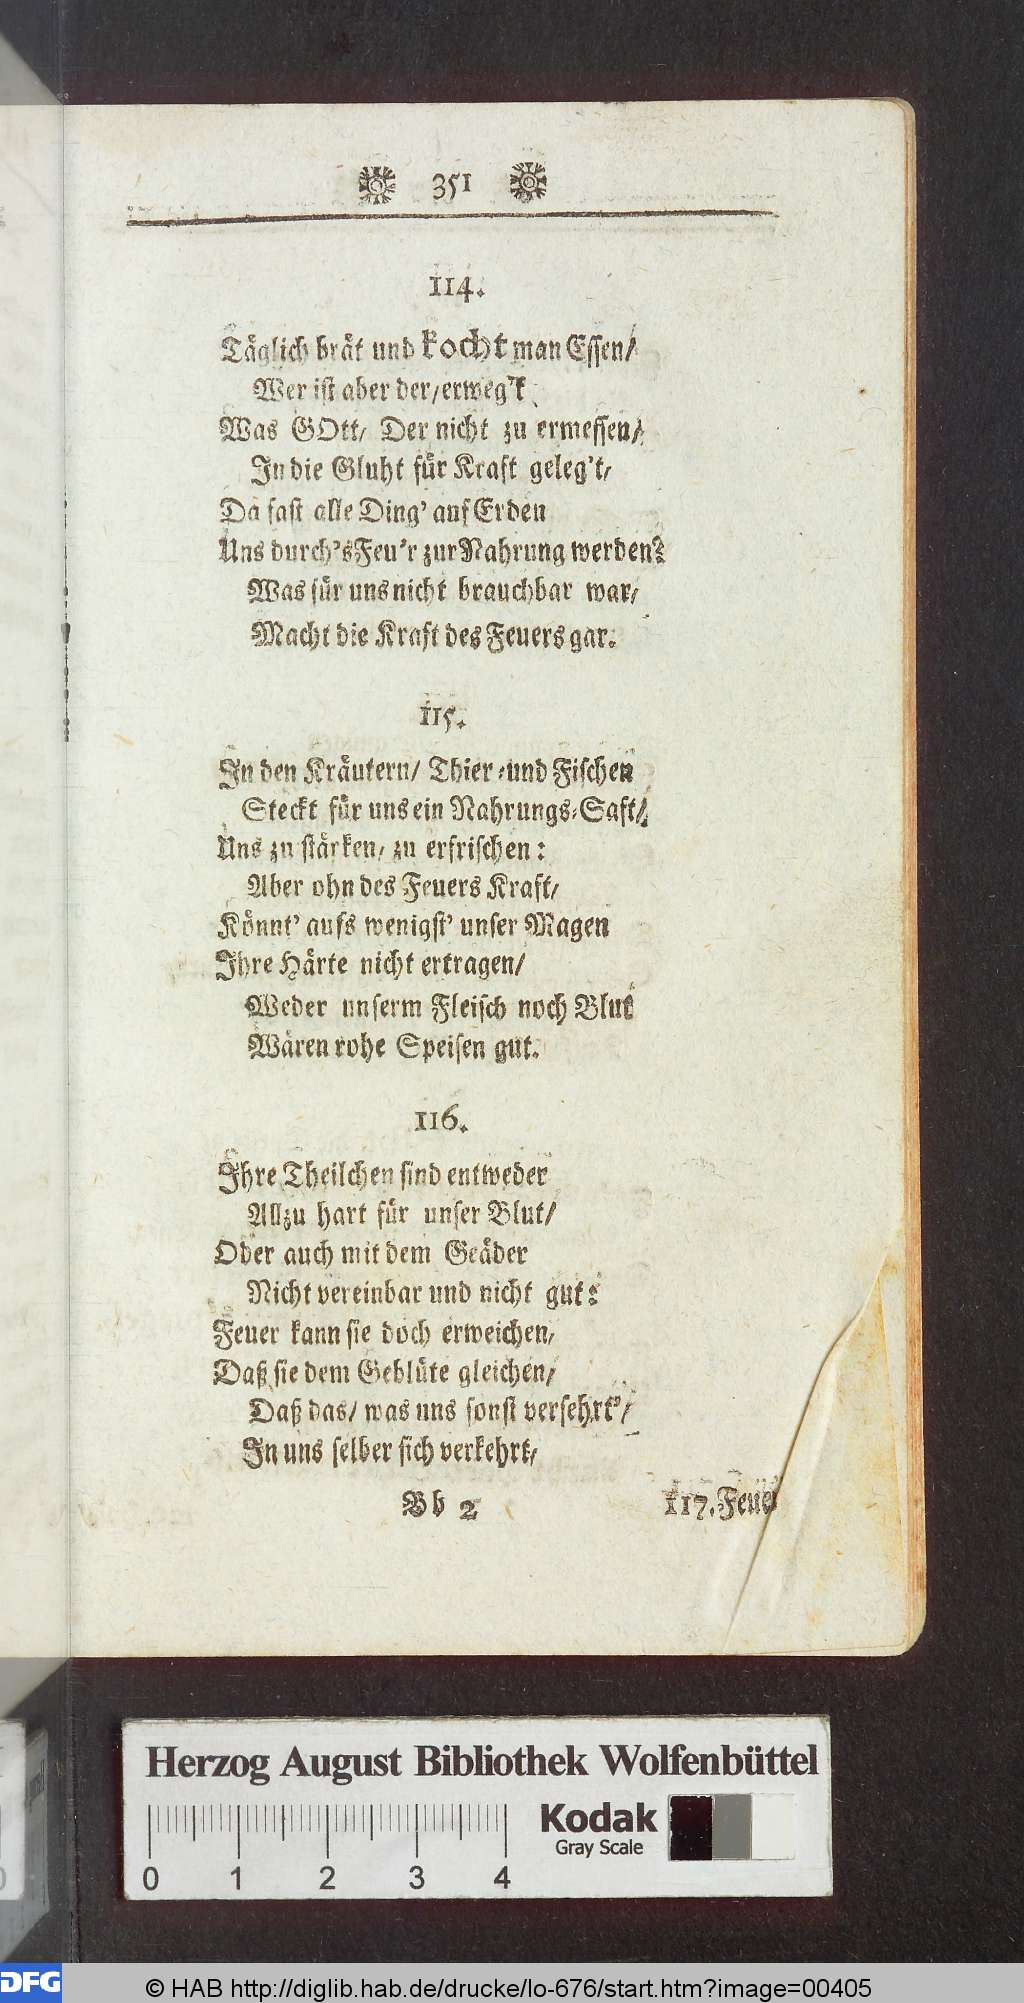 351
114.
Täglich brät und kocht man Essen/
Wer ist aber der/ erweg't
Was GOtt/ Der nicht zu ermessen/
In die Gluht für Kraft geleg't/
Da fast alle Ding' auf Erden
Uns durch's Feu'r zur Nahrung werden?
Was für uns nicht brauchbar war/
Macht die Kraft des Feuers gar.
115.
In den Kräutern/ Thier-und Fischen
Steckt für uns ein Nahrungs-Saft/
Uns zu stärken/ zu erfrischen:
Aber ohn des Feuers Kraft/
Könnt' aufs wenigst' unser Magen
Ihre Härte nicht ertragen/
Weder unserm Fleisch noch Blut
Wären rohe Speisen gut.
116.
Ihre Theilchen sind entweder
Allzu hart für unser Blut/
Oder auch mit dem Geäder
Nicht vereinbar und nicht gut:
Feuer kann sie doch erweichen/
Daß sie dem Geblüte gleichen/
Daß das/ was uns sonst versehrt'/
In uns selber sich verkehrt/
Bb 2
117. Feuer
Herzog August Bibliothek Wolfenbüttel
Kodak
Gray Scale
0 1 2 3 4
DFG
© HAB http://diglib.hab.de/drucke/lo-676/start.htm?image=00405